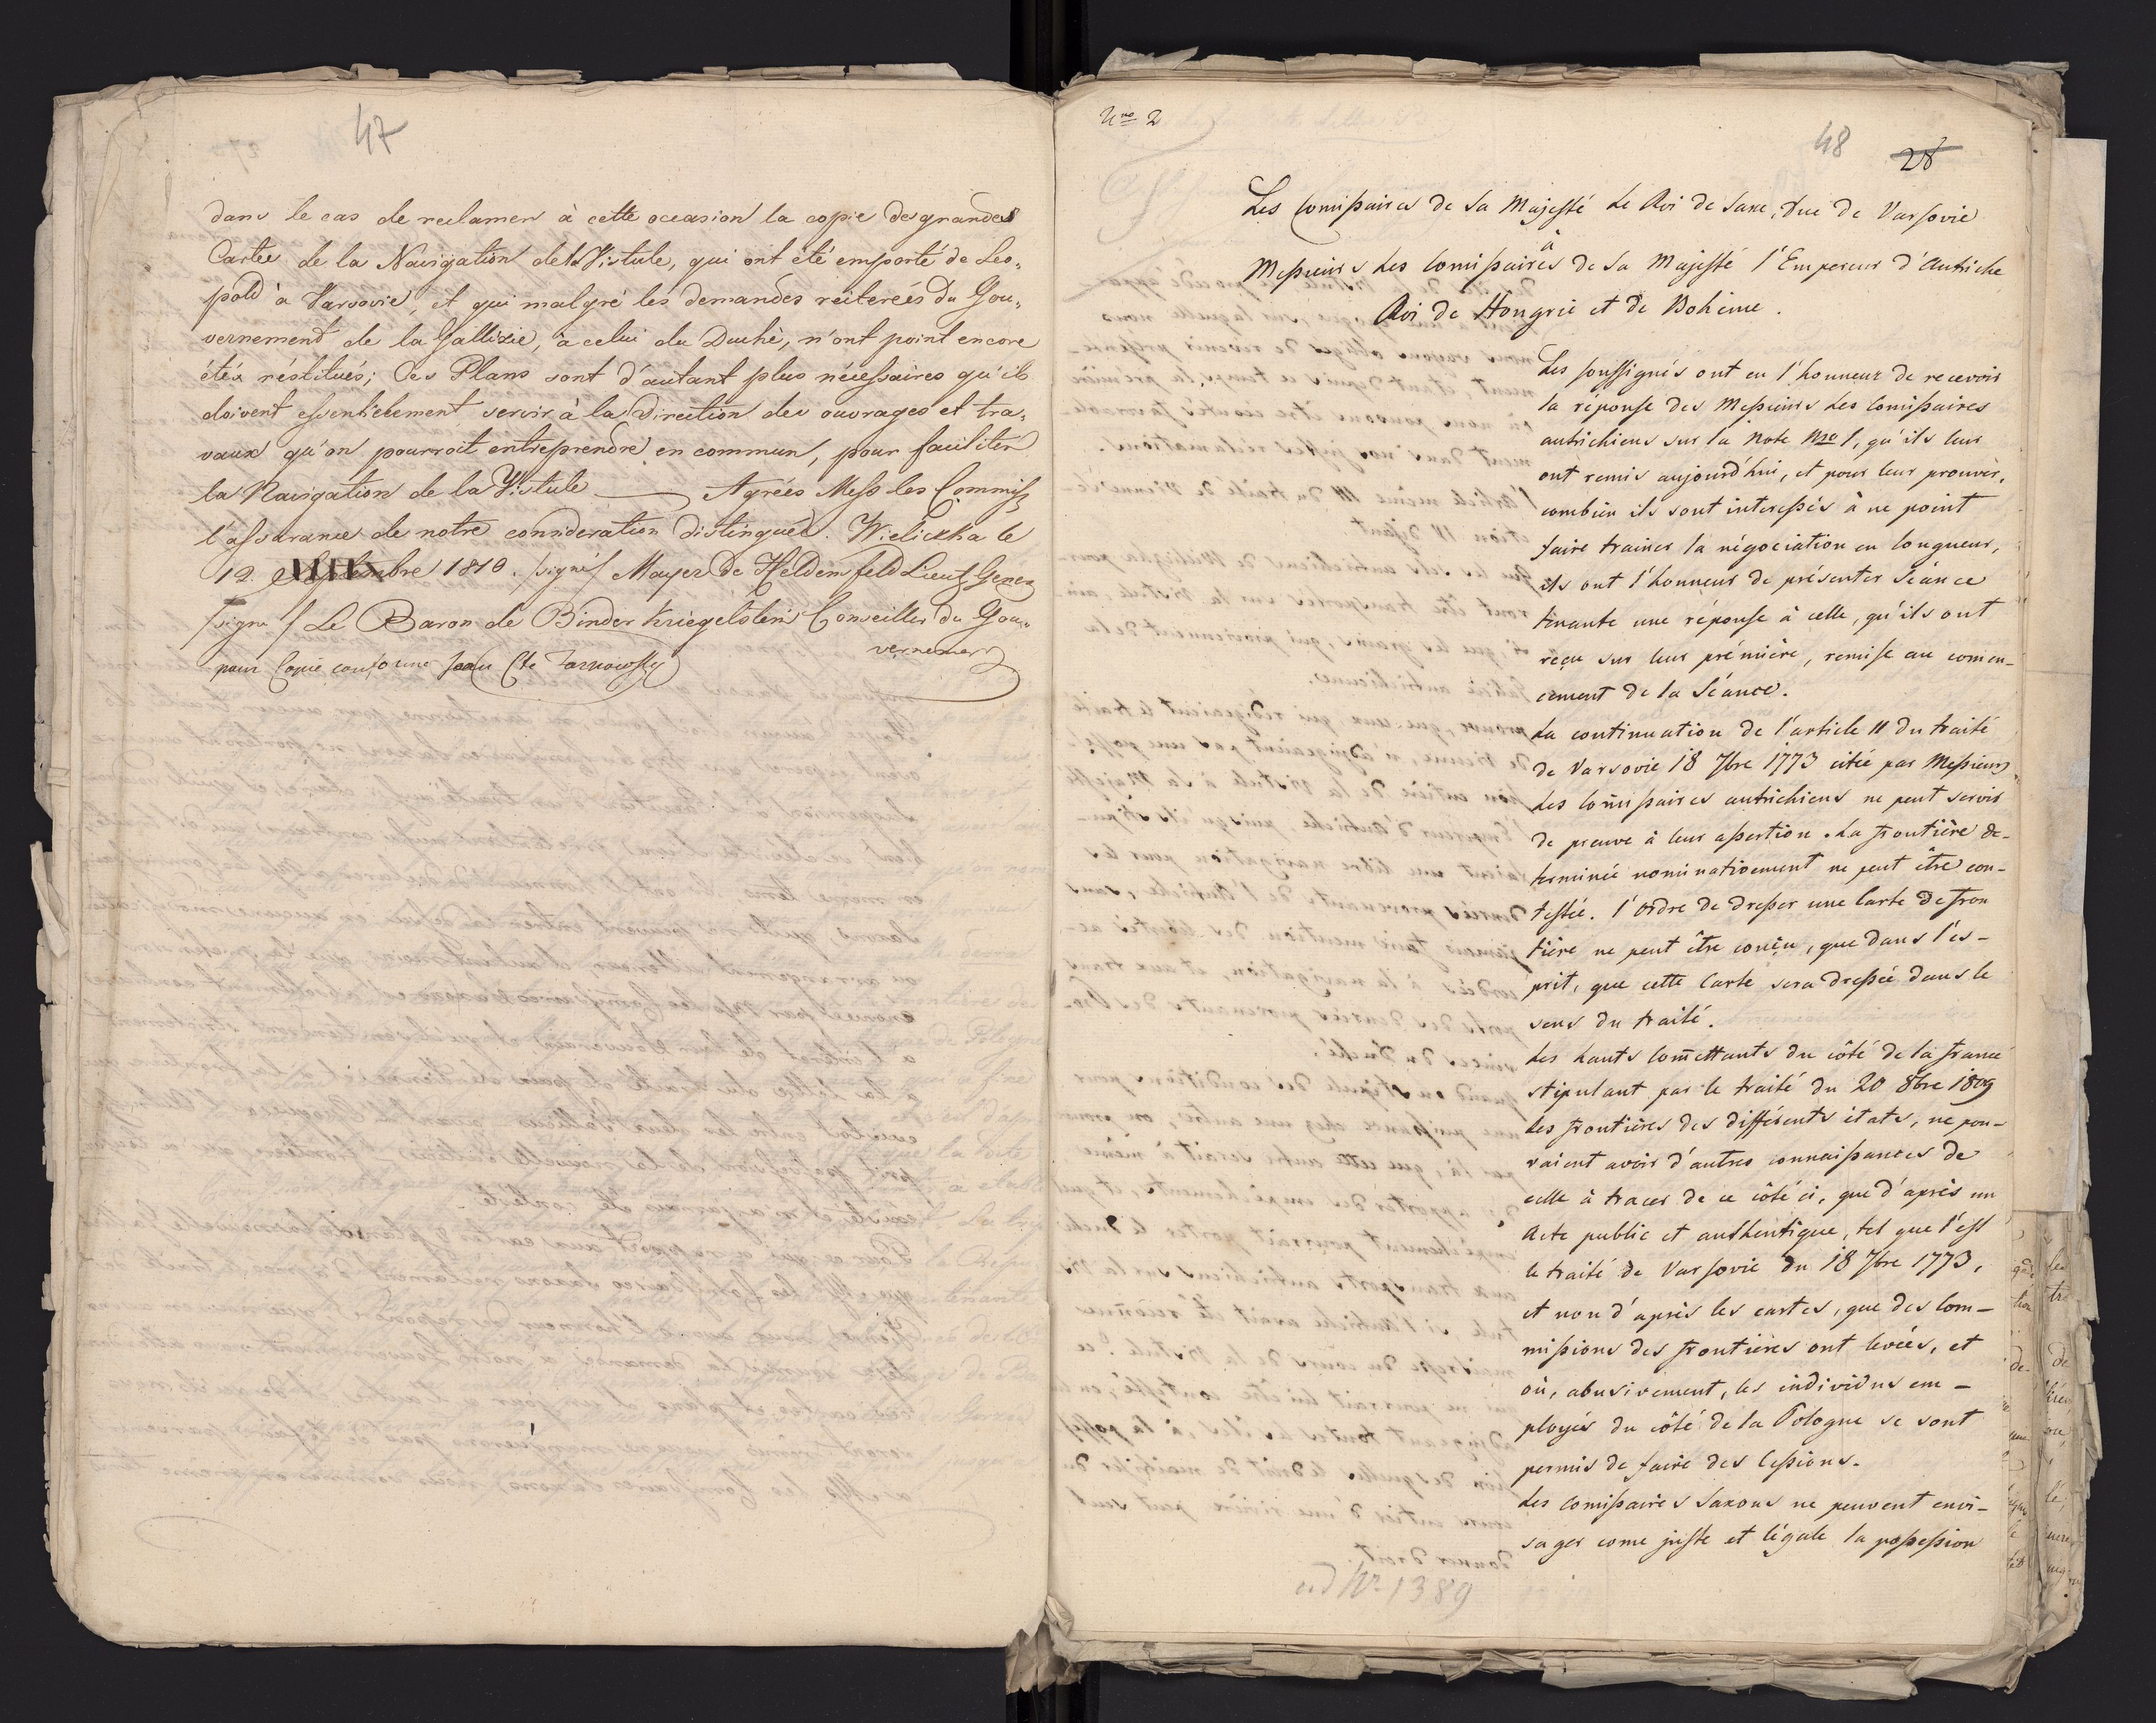 47
dans le cas de reclamer à cette occasion la copie des grandes
Cartes de la Navigation de la Vistule, qui ont été emporté de Leo„
pold à Varsovie, et qui malgré les demandes réiterées du Gou„
vernement de la Gallizie, à celui du Duché, n'ont point encore
étés réstitués; Ces Plans sont d'autant plus nécessaires qu'ils
doivent essentielement servir à la Direction des ouvrages et tra„
vaux qu'on pourroit entreprendre en commun, pour faciliter
la Navigation de la Vistule — Agrées Mess les Commiss
l'assurance de notre consideration distinguée. Wielickha le
12. 1810. /signé/ Mayer de Heldensfeld Lieut Gener
/signé/ Le Baron de Binder Kriegelstein Conseiller du Gou„
vernement
pour Copie conforme Jean Cte Tarnowsky
Nro 2
48
28
Les Comissaires de Sa Majesté Le Roi de Saxe, Duc de Varsovie
à
Messieurs Les Comissaires de Sa Majesté l'Empereur d'Autriche
Roi de Hongrie et de Bohème.
Les soussignés ont eu l'honneur de recevoir
la réponse des Messieurs Les Comissaires
autrichiens sur la Note Nro 1, qu'ils leur
ont remis aujourd'hui, et pour leur prouver,
combien ils sont interessés à ne point
faire trainer la négociation en longueur,
ils ont l'honneur de présenter Séance
tenante une réponse à celle, qu'ils ont
reçu sur leur prémière, remise au comen-
cement de la Séance.
La continuation de l'article II du traité
de Varsovie 18 7bre 1773 citée par Messieurs
Les Comissaires autrichiens ne peut servir
de preuve à leur assertion. La frontière de-
terminée nominativement ne peut être con-
testée. l'ordre de dresser une Carte de fron
tière ne peut être conçu, que dans l'es-
prit, que cette Carte sera dressée dans le
sens du traité.
Les hauts Comettants du côté de la france
stipulant par le traité du 20 8bre 1809
les frontières des différents états, ne pou-
vaient avoir d'autres connaissances de
celle à tracer de ce côté ci, que d'après un
Acte public et authentique, tel que l'est
le traité de Varsovie du 18 7bre 1773,
et non d'après les cartes, que des Com-
missions des frontières ont levées, et
où, abusivement, les individus em-
ployés du côté de la Pologne se sont
permis de faire des Cessions.
Les Comissaires Saxons ne peuvent envi-
sager come juste et légale la possession
ad Nr 1389